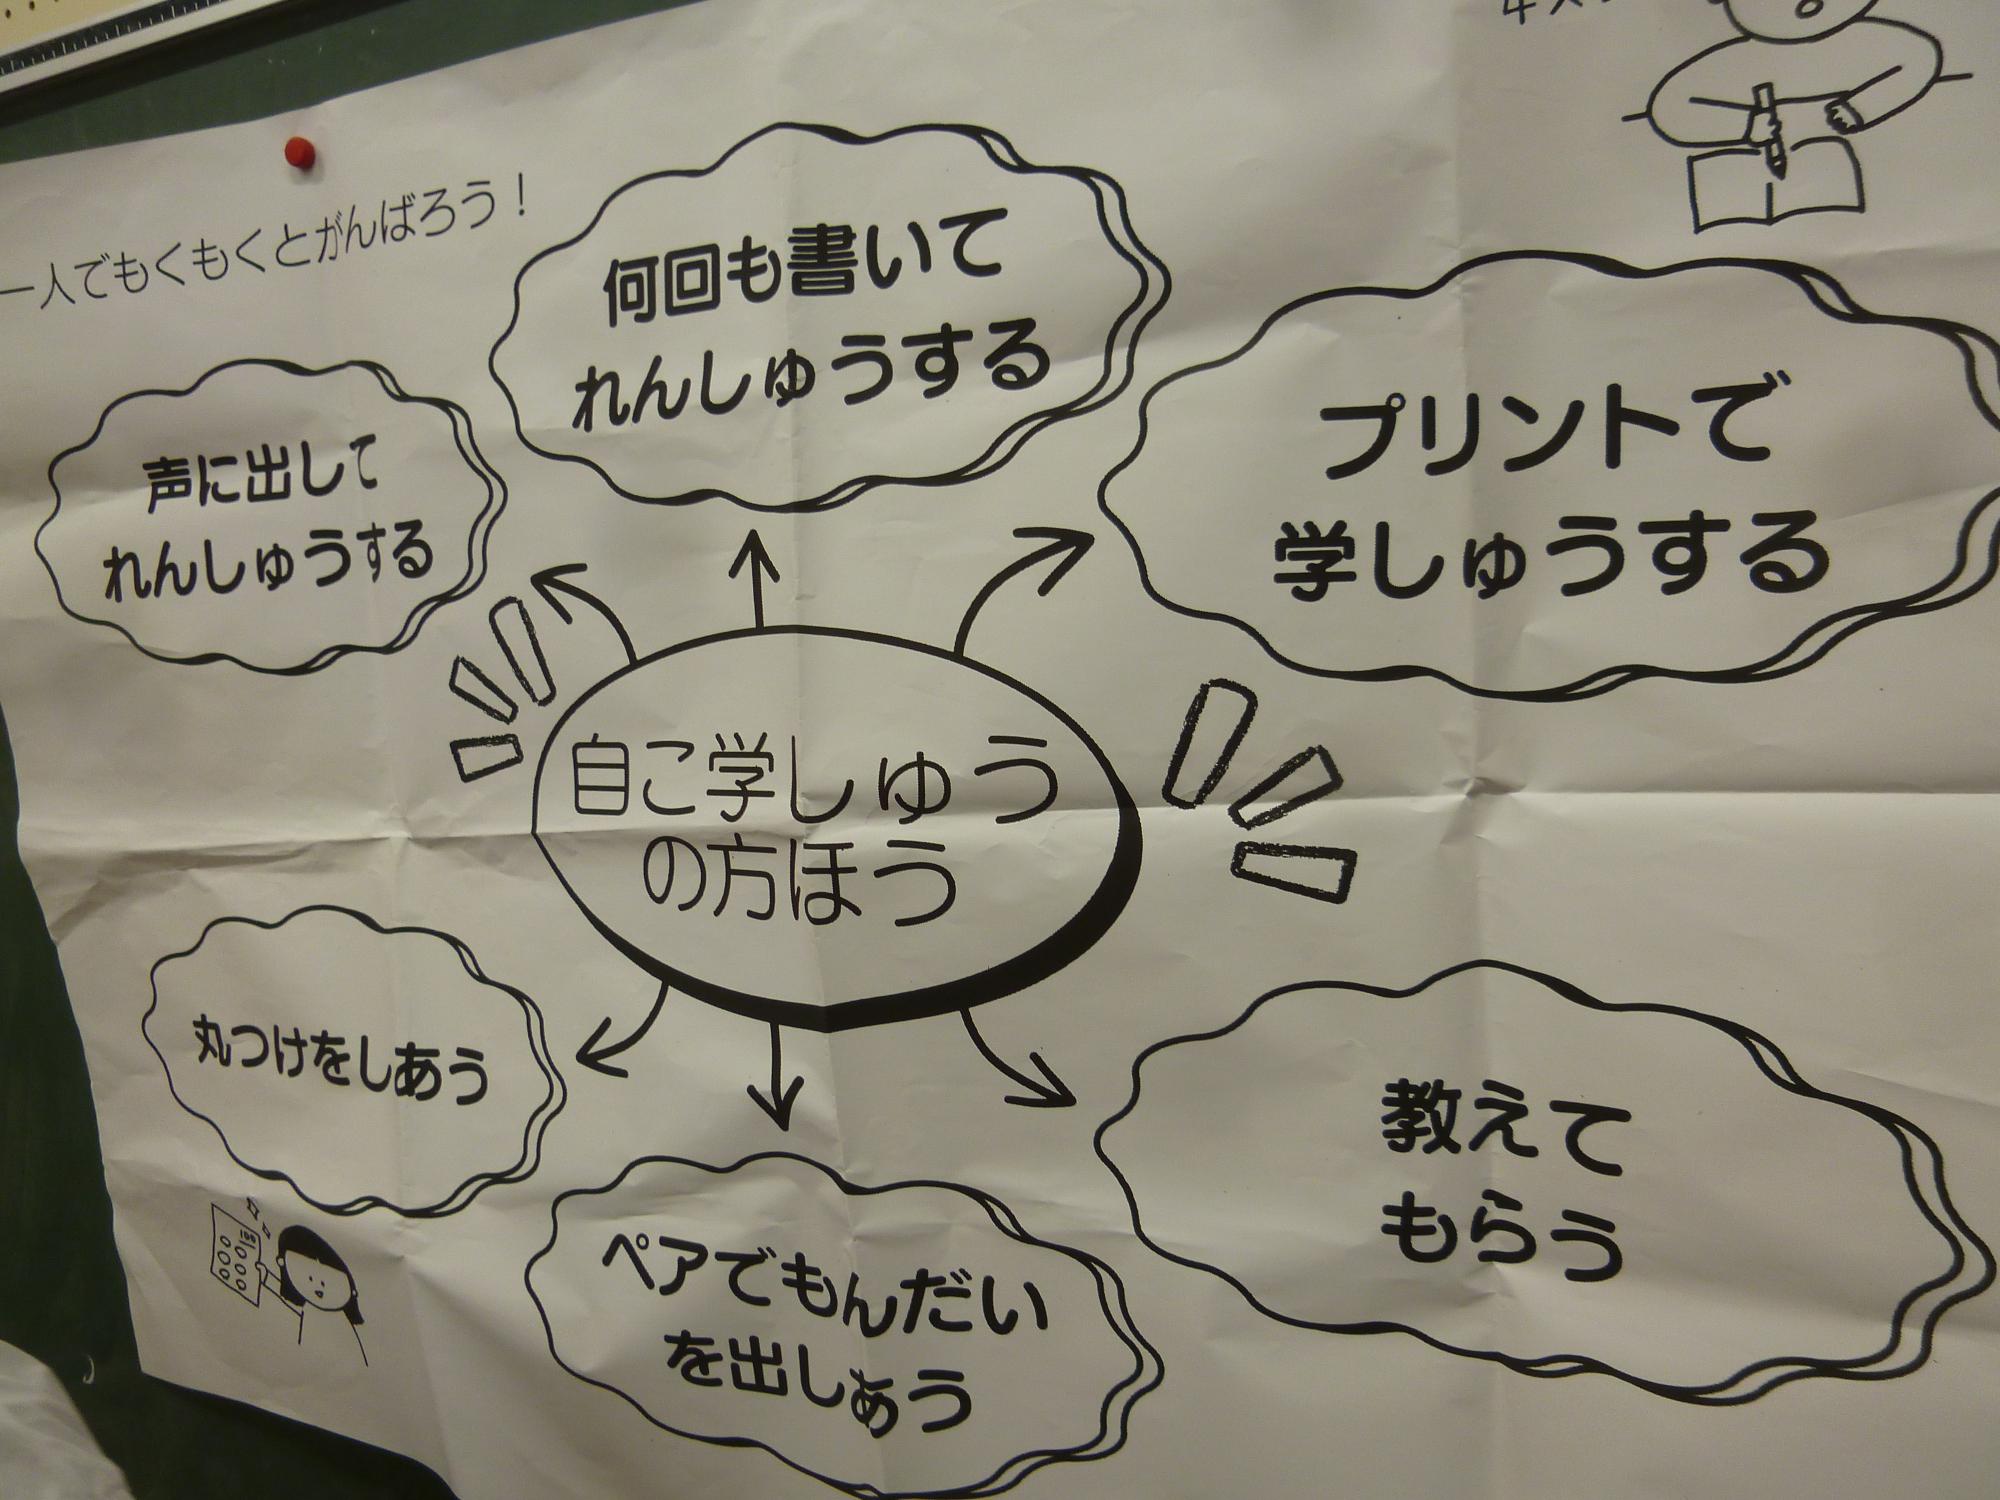 一人でもくもくとがんばろう！
何回も書いて
れんしゅうする
声に出して
れんしゅうする
プリントで
学しゅうする
自こ学しゅう
の方ほう
丸つけをしあう
ペアでもんだい
を出しあう
教えて
もらう